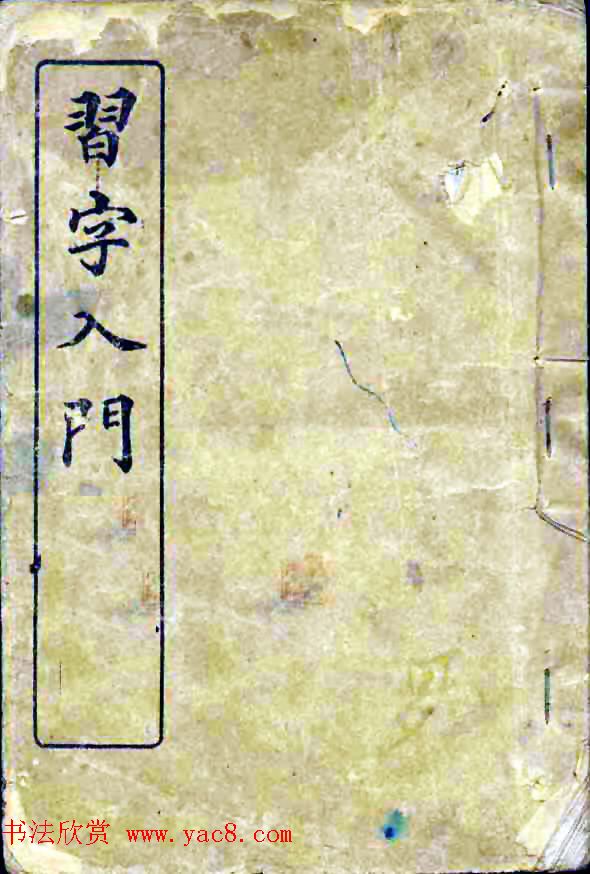 習字入門
书法欣赏 www.yac8.com